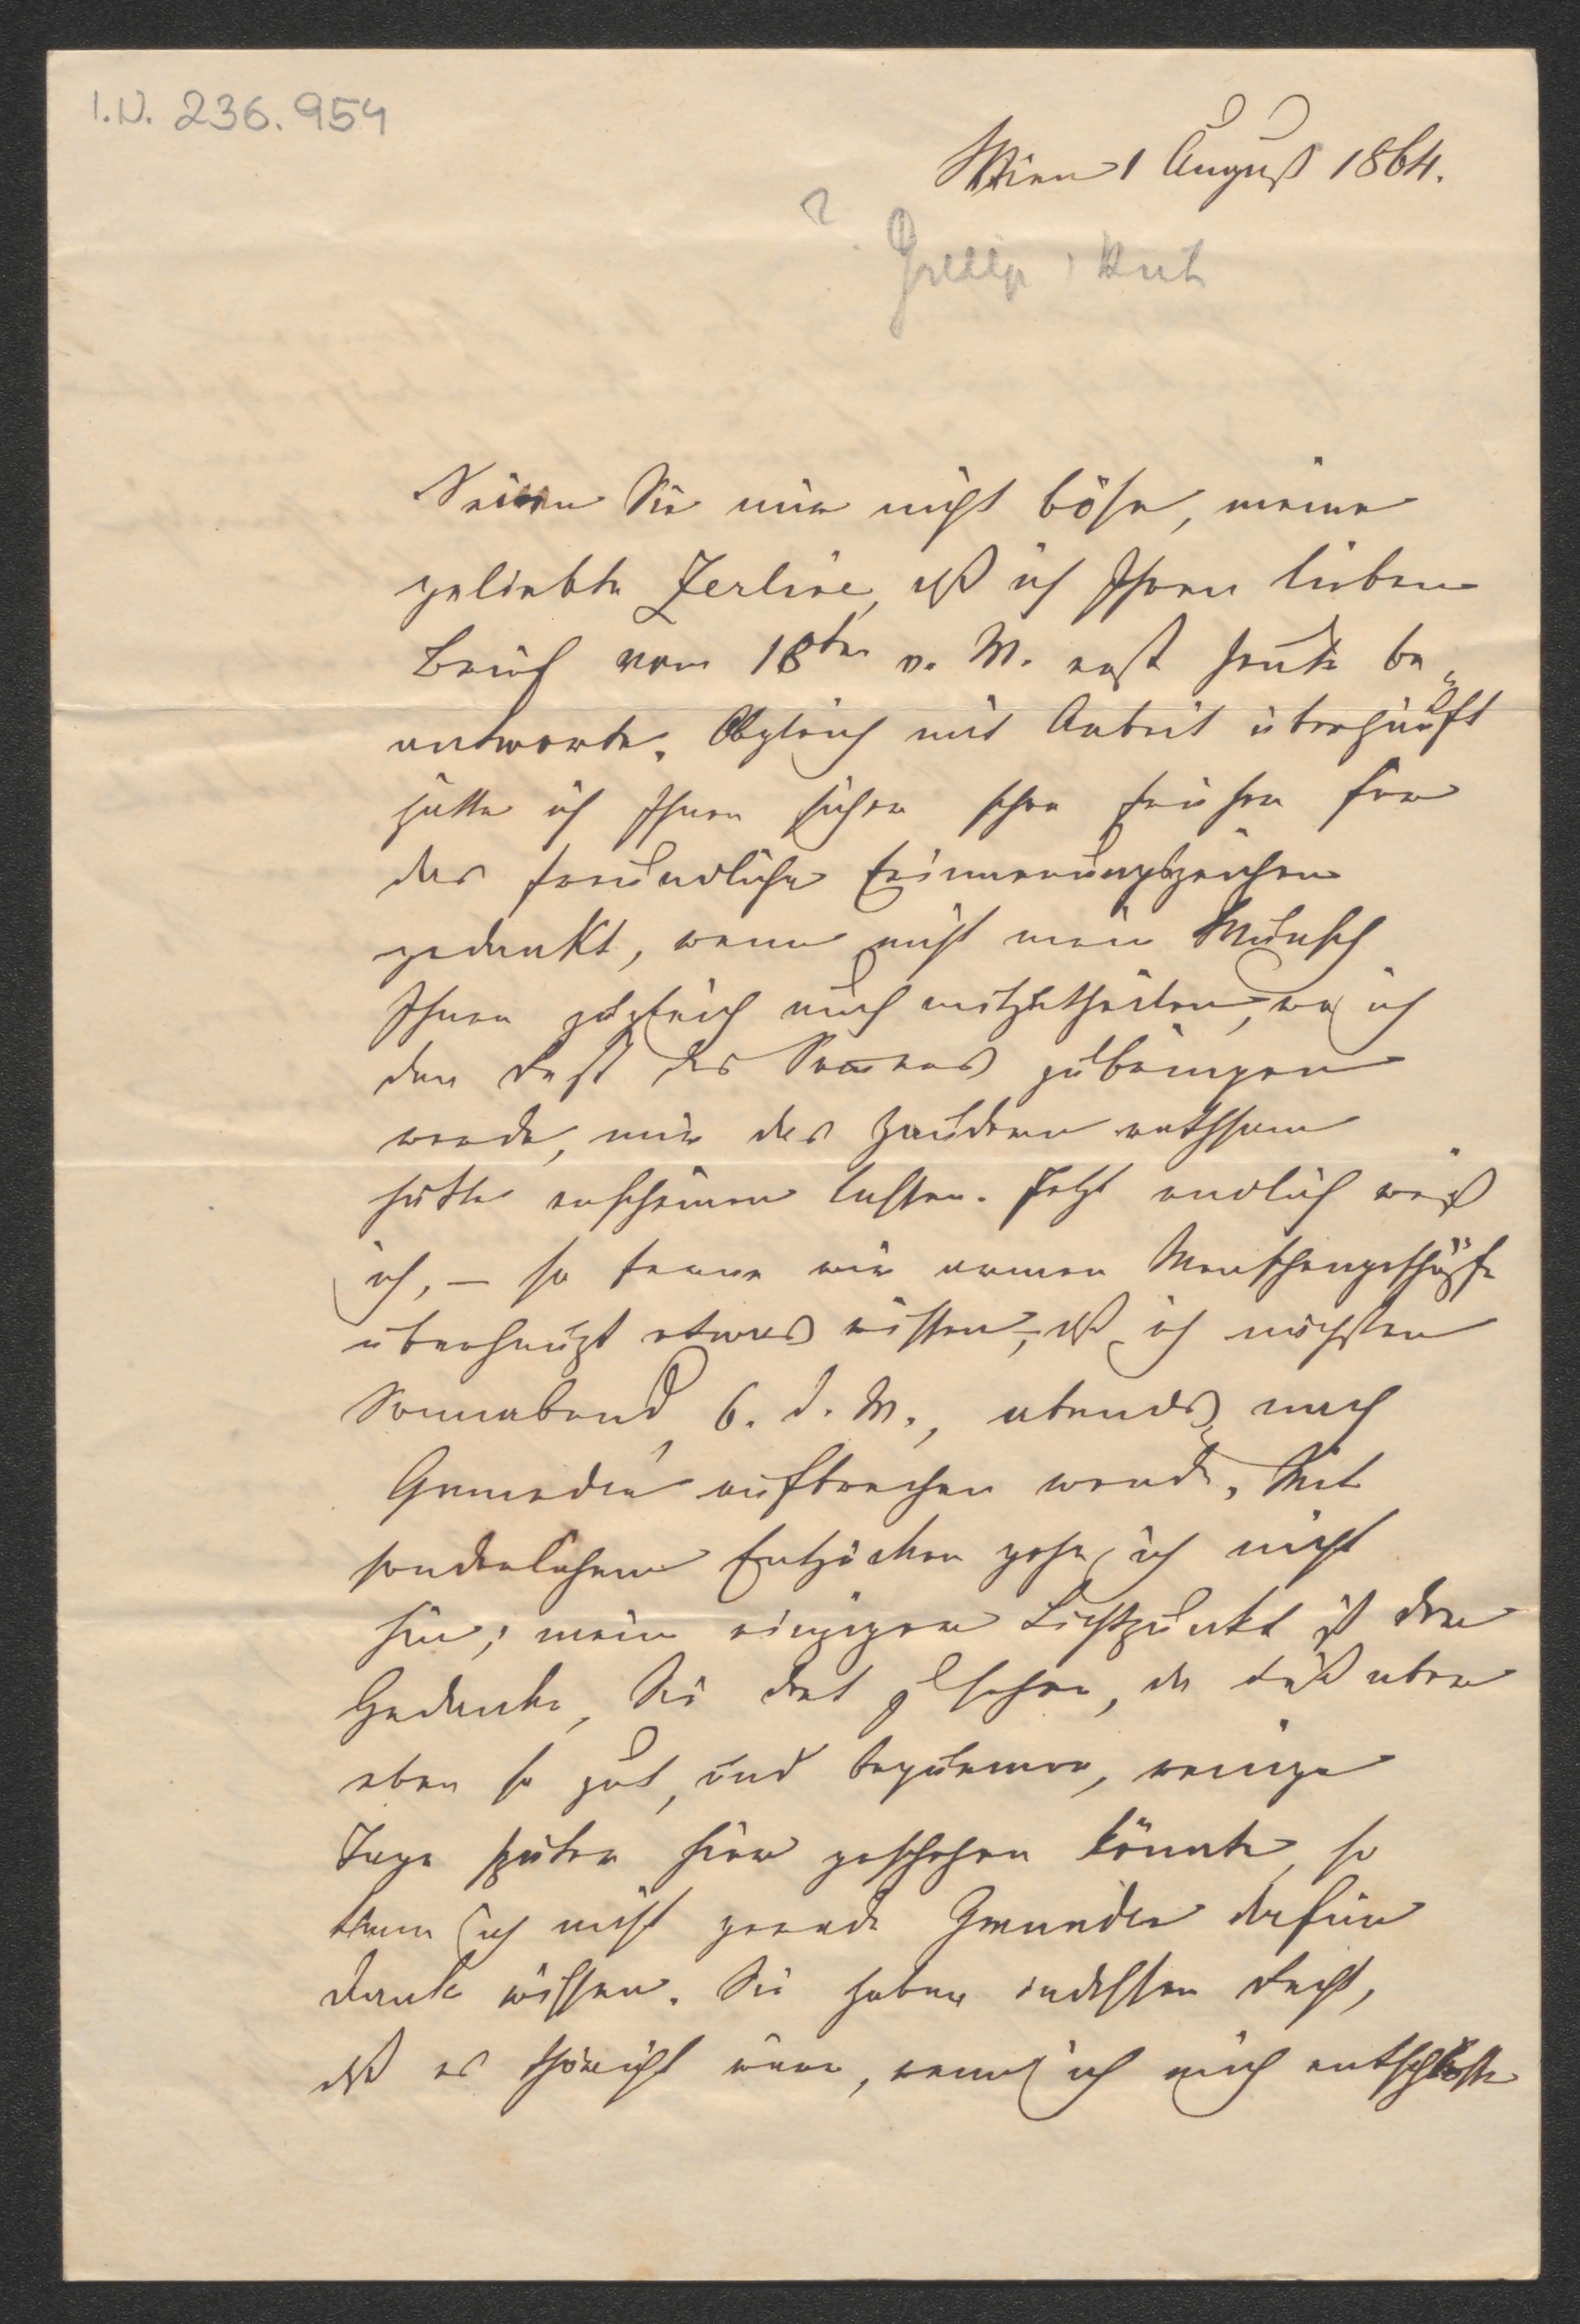 I.N. 236.954
Wien 1 August 1864.
?
Seien Sie mir nicht böse, meine
geliebte Zerline, daß ich Ihren lieben
Brief vom 18ten v. M. erst heute be„
antworte. Obgleich mit Arbeit überhäuft
hätte ich Ihnen sicher schon früher für
das freundliche Erinnerungszeichen
gedankt, wenn nicht mein Wunsch
Ihnen zugleich auch mitzutheilen, wo ich
den Rest des Sommers zubringen
werde, mir das Zaudern rathsam
hätte erscheinen lassen. Jetzt endlich weiß
ich, – so ferne wir armen Menschengeschöpfe
überhaupt etwas wissen, – daß ich nächsten
Sonnabend 6. d. M., abends nach
Gmunden aufbrechen werde. Mit
sonderlichem Entzücken gehe ich nicht
hin; mein einziger Lichtpunkt ist der
Gedanke, Sie dort zu sehen, da dieß aber
eben so gut, und bequemer, wenige
Tage später hier geschehen könnte, so
kann ich nicht gerade Gmunden dafür
Dank wissen. Sie haben indessen Recht,
daß es thöricht wäre, wenn ich mich entschlöße